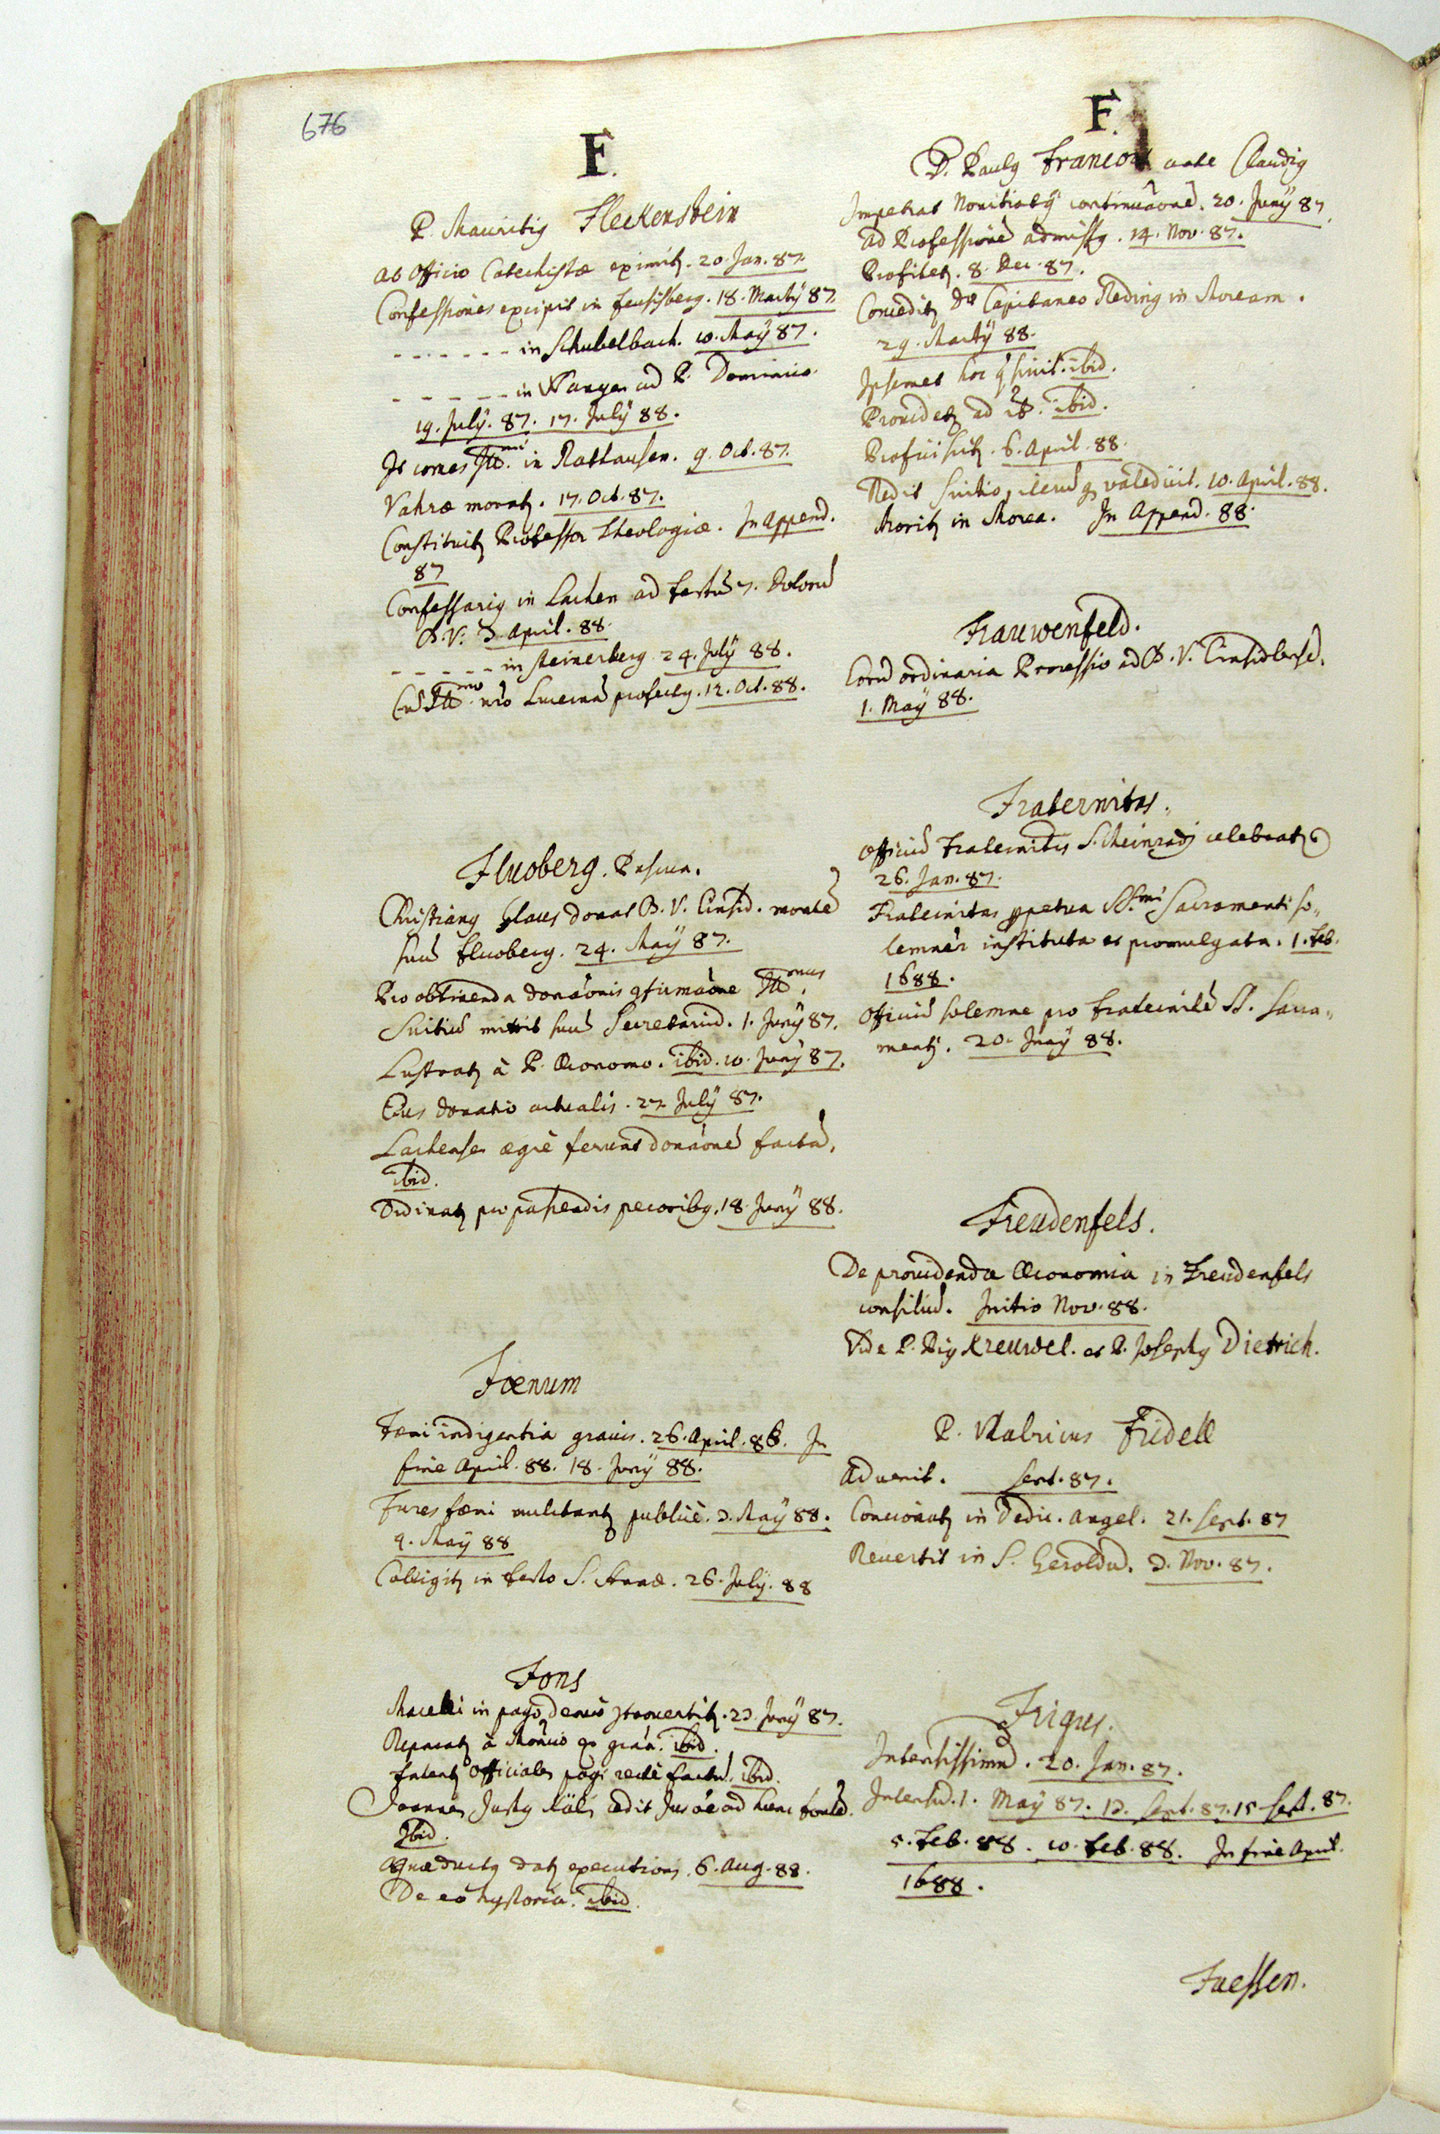 676
F.
P. Mauritiq Fleckenstein
ab officio Catechistæ eximit. 20. Jan. 87.
Confessiones excipit in feusisberg. 18. Martÿ 87.
- - - - - - in Schubelbach. 10. Maÿ 87.
- - - - - - in Wangen ad P. Dominic.
19. Julÿ. 87. 17. Julÿ 88.
It comes Illmi in Rathausen. 9. Oct. 87.
Vahræ morat. 17. Oct. 87.
Constituit Professor Theologiæ. In Append.
87
Confessariq in Lachen ad festu 7. Dolorū
B.V. 3. April. 88.
- - - - - in steinerberg. 24. Julÿ 88.
Cū Illmo nro Lucernā profectq. 12. Oct. 88.
Fluoberg. Pascua.
Christianq donat B. V. Einsid. montē
suū fluoberg. 24. Maÿ 87.
Pro obtinenda donaōnis gfirmaōne Illmus
Suitiū mittit suū Secretariū. 1. Junÿ 87.
Lustrat à P. Œconomo. ibid. 10. Junÿ 87.
Eius donatio actualis. 27. Julÿ 87.
Lachenses ægrè ferunt donaōnē factā.
ibid.
Ordinat pro pascendis pecoribq. 18. Junÿ 88.
Fœnum
Fœni indigentia gravis. 26. April. 86. In
fine April. 88. 18. Junÿ 88.
Fures fœni mulctant publicè. 3. Maÿ 88.
9. Maÿ 88
Colligit in festo S. Annæ. 26. Julÿ. 88
Fons
Macelli in pago denuò gtrovertit. 23. Junÿ 87.
Reparat à ibid.
fatent officiales pagi rectè factū. ibid.
Joannes Justq Käli cedit ad hunc fontē.
Ibid.
Aquæductq dat executioni. 6. Aug. 88.
De eō hystoria. ibid.
F.
P. Paulq Francon ante Claudiq
Impetrat Novitiatq continuaōnē. 20. Junÿ 87.
ad Professionē admissq. 14. Nov. 87.
Profitet. 8. Dec. 87.
Concedit Capitaneo Reding in Moream.
29. Martÿ 88.
Ipsemet hoc ibid.
Providet ad ibid.
Proficiscit. 6. April. 88.
Redit Suitio, iterūq valedicit. 10. April. 88.
Morit in Morea. In Append. 88.
Frauwenfeld.
Coram ordinaria Processio ad B. V. Einsidlensē.
1. Maÿ 88.
Fraternitas.
Officiū Fraternitis S. Meinradi celebrat
26. Jan. 87.
Fraternitas ppetua SS.mi Sacramenti so-
lemnèr instituta et promulgata. 1. Feb.
1688.
Officiū solemne pro fraternitē SS. Sacra-
menti. 20. Junÿ 88.
Freudenfels.
De providenda Œconomia in Freudenfels
consiliū. Initio Nov. 88.
Vide P. Piq Kreuwel. et P. Josephq Dietrich.
P. Udalricus Fridell
Advenit. Sept. 87.
Concionat in Dedic. Angel. 21. Sept. 87
Revertit in S. Geroldū. 3. Nov. 87.
Frigus.
Intensissimū. 20. Jan. 87.
Intensū. 1. Maÿ 87. 13. Sept. 87. 15 Sept. 87.
5. Feb. 88. 10. Feb. 88. In fine April.
1688.
Fuessen.